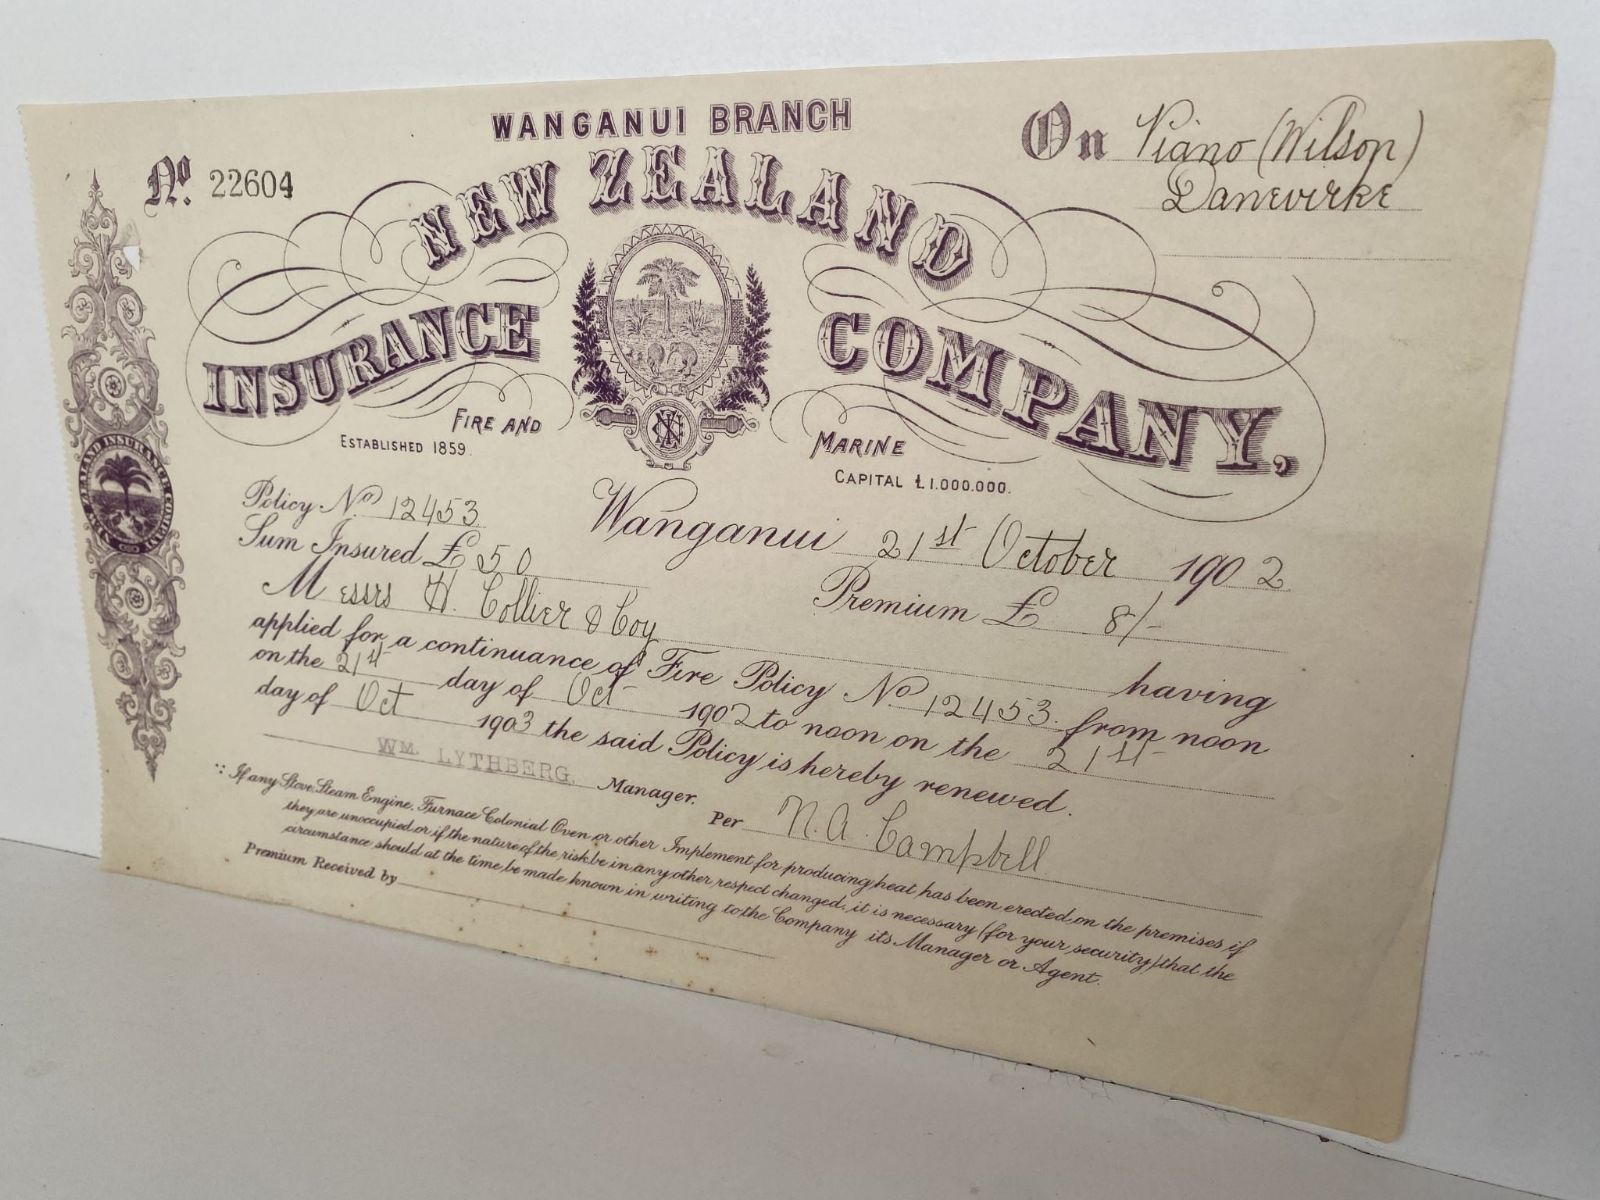 WANGANUI BRANCH
On Piano (Wilson)
Danevirke
No. 22604
NEW ZEALAND
INSURANCE COMPANY.
FIRE AND MARINE
ESTABLISHED 1859.
CAPITAL £1.000.000.
NEW ZEALAND INSURANCE COMPANY
NZ
Policy No 12453
Wanganui 21st October 1902
Sum Insured £ 50
Premium £ 8/-
Messrs H. Collier & Coy having
applied for a continuance of Fire Policy No 12453. from noon
on the 21st day of Oct- 1902 to noon on the 21st
day of Oct 1903 the said Policy is hereby renewed.
WM. LYTHBERG. Manager.
Per N. A. Campbell
If any Stove, Steam Engine, Furnace Colonial Oven or other Implement for producing heat has been erected on the premises if
they are unoccupied or if the nature of the risk be in any other respect changed, it is necessary (for your security) that the
circumstance should at the time be made known in writing to the Company its Manager or Agent.
Premium Received by